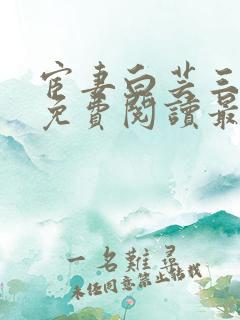 官妻白芸三
免費閱讀最
一名難尋
未經同意禁止轉載